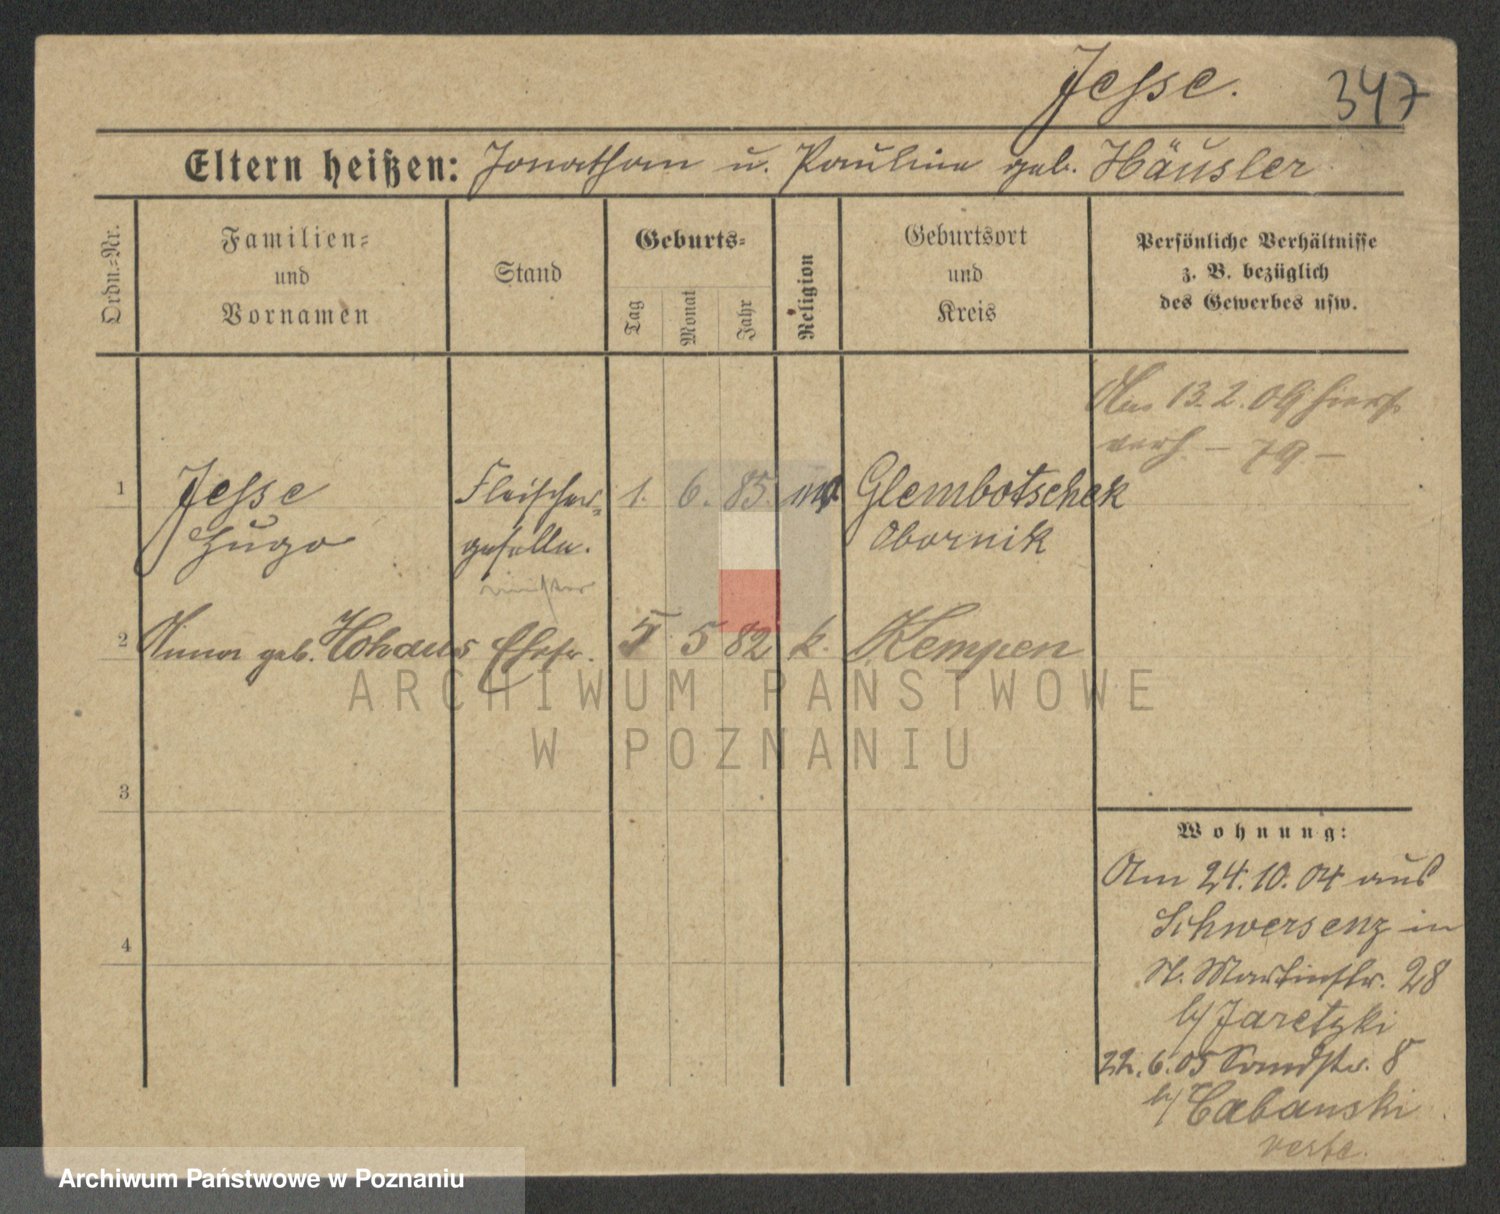 Jesse.
347
Eltern heißen: Jonathan u. Pauline geb. Häusler
Ordn.=Nr.
Familien=
und
Vornamen
Stand
Geburts=
Tag
Monat
Jahr
Religion
Geburtsort
und
Kreis
Persönliche Verhältnisse
z. B. bezüglich
des Gewerbes usw.
Am 13.2.09 hier
verh. – 79 –
1 Jesse Fleischer= 1. 6. 85. Glembotschek
Hugo geselle. Obornik
2 geb. Hohaus Ehefr. 5 82 k. Kempen
3
4
Wohnung:
Am 24.10.04 aus
Schwersenz in
St. Martinstr. 28
b/ Jaretzki
22.6.05 Sandstr. 8
b/ Cabanski
ARCHIWUM PAŃSTWOWE
W POZNANIU
Archiwum Państwowe w Poznaniu